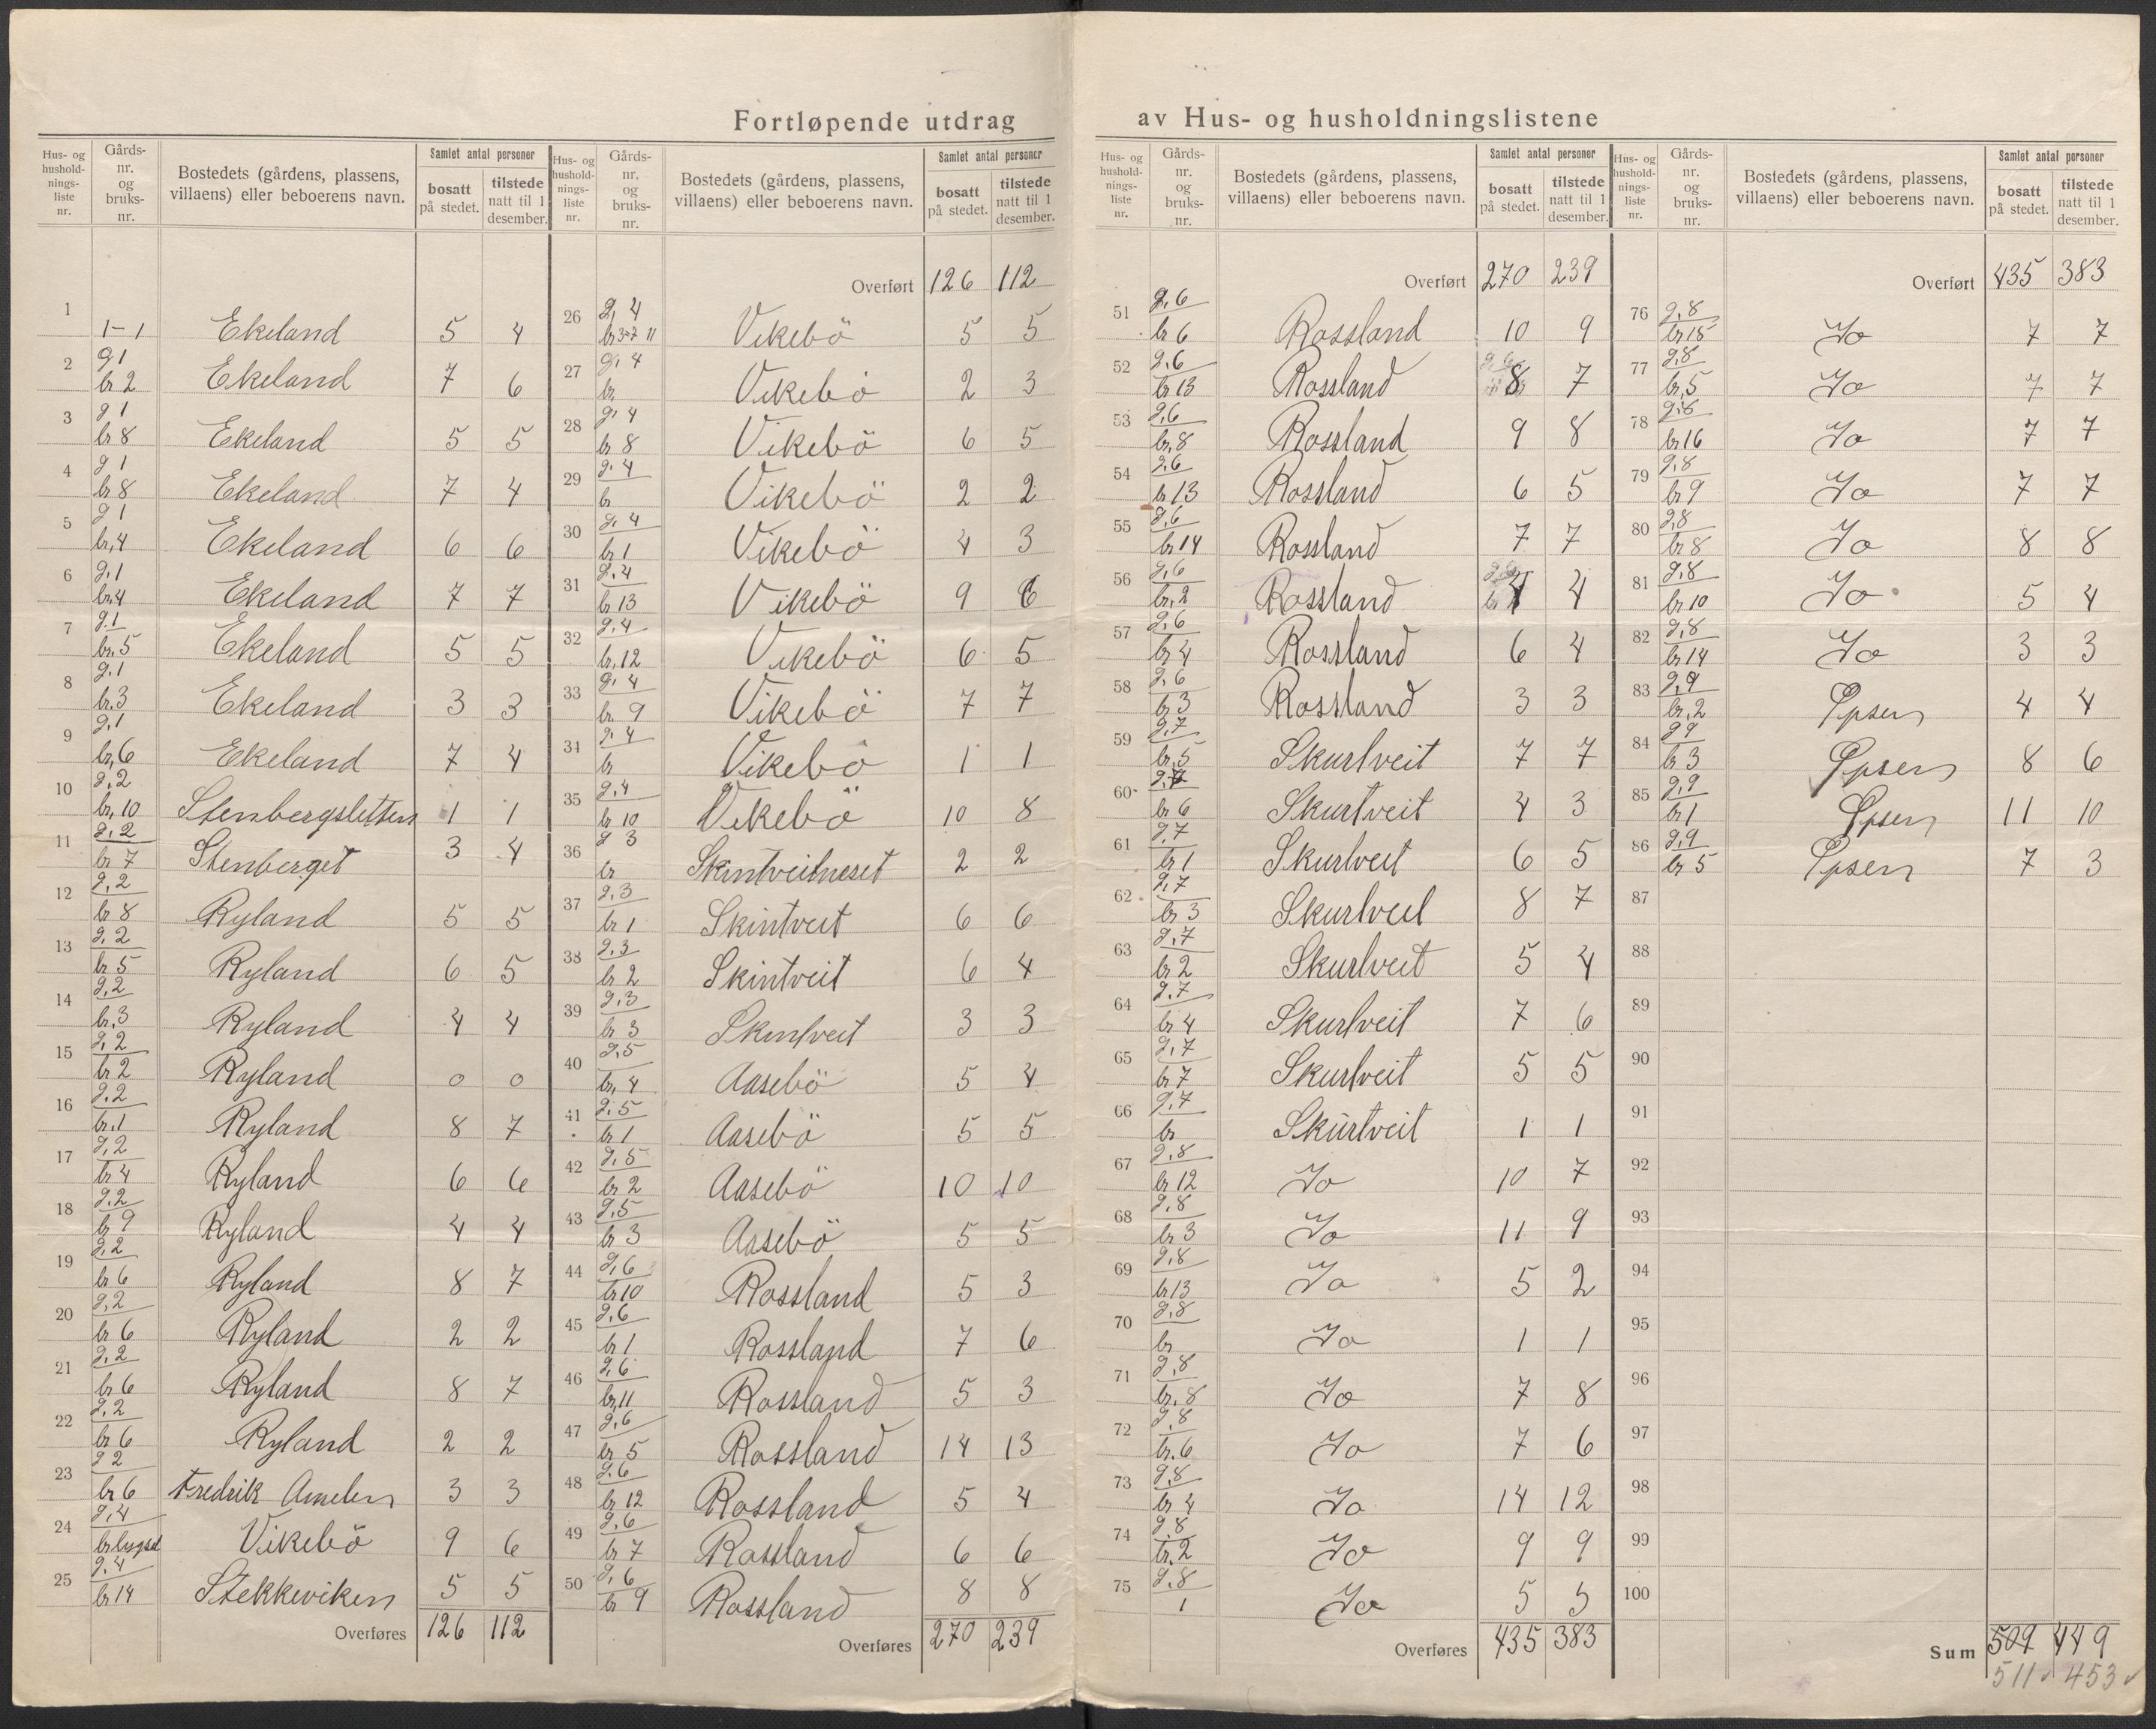 Fortløpende utdrag av Hus- og husholdningslistene
Hus- og husholdnings-liste nr. | Gårds-nr. og bruks-nr. | Bostedets (gårdens, plassens, villaens) eller beboerens navn. | Samlet antal personer | bosatt på stedet. | tilstede natt til 1 desember.
1 | 1-1 | Ekeland | 5 | 4
2 | g 1 br 2 | Ekeland | 7 | 6
3 | g 1 br 8 | Ekeland | 5 | 5
4 | g 1 br 8 | Ekeland | 7 | 4
5 | g 1 br. 4 | Ekeland | 6 | 6
6 | g. 1 br. 4 | Ekeland | 7 | 7
7 | g 1 br. 5 | Ekeland | 5 | 5
8 | g. 1 br. 3 | Ekeland | 3 | 3
9 | g. 1 br. 6 | Ekeland | 7 | 4
10 | g. 2 br. 10 | Stenbergsletten | 1 | 1
11 | g. 2 br 7 | Stenberget | 3 | 4
12 | g. 2 br 8 | Ryland | 5 | 5
13 | g. 2 br 5 | Ryland | 6 | 5
14 | g. 2 br. 3 | Ryland | 4 | 4
15 | g. 2 br 2 | Ryland | 0 | 0
16 | g. 2 br. 1 | Ryland | 8 | 7
17 | g. 2 br 4 | Ryland | 6 | 6
18 | g. 2 br 9 | Ryland | 4 | 4
19 | g. 2 br 6 | Ryland | 8 | 7
20 | g. 2 br 6 | Ryland | 2 | 2
21 | g. 2 br 6 | Ryland | 8 | 7
22 | g. 2 br 6 | Ryland | 2 | 2
23 | g 2 br 6 | Fredrik | 3 | 3
24 | g. 4 br | Vikebö | 9 | 6
25 | g. 4 br 14 | Stekkeviken | 5 | 5
Overføres | 126 | 112
Hus- og husholdnings-liste nr. | Gårds-nr. og bruks-nr. | Bostedets (gårdens, plassens, villaens) eller beboerens navn. | Samlet antal personer | bosatt på stedet. | tilstede natt til 1 desember.
Overført | 126 | 112
26 | g. 4 br 3-7 11 | Vikebö | 5 | 5
27 | g. 4 br. | Vikebö | 2 | 3
28 | g. 4 br 8 | Vikebö | 6 | 5
29 | g. 4 br | Vikebö | 2 | 2
30 | g. 4 br 1 | Vikebö | 4 | 3
31 | g. 4 br 13 | Vikebö | 9 | 6
32 | g. 4 br. 12 | Vikebö | 6 | 5
33 | g. 4 br. 9 | Vikebö | 7 | 7
34 | g. 4 br | Vikebö | 1 | 1
35 | g. 4 br 10 | Vikebö | 10 | 8
36 | g 3 br | Skintveitneset | 2 | 2
37 | g. 3 br 1 | Skintveit | 6 | 6
38 | g. 3 br 2 | Skintveit | 6 | 4
39 | g. 3 br 3 | Skintveit | 3 | 3
40 | g. 5 br. 4 | Aasebö | 5 | 4
41 | g. 5 br 1 | Aasebö | 5 | 5
42 | g. 5 br 2 | Aasebö | 10 | 10
43 | g. 5 br 3 | Aasebö | 5 | 5
44 | g. 6 br 10 | Rossland | 5 | 3
45 | g. 6 br 1 | Rossland | 7 | 6
46 | g. 6 br. 11 | Rossland | 5 | 3
47 | g. 6 br 5 | Rossland | 14 | 13
48 | g. 6 br 12 | Rossland | 5 | 4
49 | g. 6 br 7 | Rossland | 6 | 6
50 | g. 6 br 9 | Rossland | 8 | 8
Overføres | 270 | 239
Hus- og husholdnings-liste nr. | Gårds-nr. og bruks-nr. | Bostedets (gårdens, plassens, villaens) eller beboerens navn. | Samlet antal personer | bosatt på stedet. | tilstede natt til 1 desember.
Overført | 270 | 239
51 | g. 6 br 6 | Rossland | 10 | 9
52 | g. 6 br 13 | Rossland | 8 | 7
53 | g. 6 br. 8 | Rossland | 9 | 8
54 | g. 6 br 13 | Rossland | 6 | 5
55 | g. 6 br 14 | Rossland | 7 | 7
56 | g. 6 br. 2 | Rossland | 4 | 4
57 | g. 6 br 4 | Rossland | 6 | 4
58 | g. 6 br 3 | Rossland | 3 | 3
59 | g. 7 br. 5 | Skurtveit | 7 | 7
60 | g. 7 br 6 | Skurtveit | 4 | 3
61 | g. 7 br 1 | Skurtveit | 6 | 5
62 | g. 7 br 3 | Skurtveit | 8 | 7
63 | g. 7 br 2 | Skurtveit | 5 | 4
64 | g. 7 br 4 | Skurtveit | 7 | 6
65 | g. 7 br 7 | Skurtveit | 5 | 5
66 | g. 7 br | Skurtveit | 1 | 1
67 | g. 8 br 12 | Io | 10 | 7
68 | g. 8 br 3 | Io | 11 | 9
69 | g. 8 br 13 | Io | 5 | 2
70 | g. 8 br | Io | 1 | 1
71 | g. 8 br. 8 | Io | 7 | 8
72 | g. 8 br. 6 | Io | 7 | 6
73 | g. 8 br 4 | Io | 14 | 12
74 | g. 8 br. 2 | Io | 9 | 9
75 | g. 8 1 | Io | 5 | 5
Overføres | 435 | 383
Hus- og husholdnings-liste nr. | Gårds-nr. og bruks-nr. | Bostedets (gårdens, plassens, villaens) eller beboerens navn. | Samlet antal personer | bosatt på stedet. | tilstede natt til 1 desember.
Overført | 435 | 383
76 | g. 8 br 15 | Io | 7 | 7
77 | g. 8 br. 5 | Io | 7 | 7
78 | g. 8 br 16 | Io | 7 | 7
79 | g. 8 br 9 | Io | 7 | 7
80 | g. 8 br 8 | Io | 8 | 8
81 | g. 8 br 10 | Io | 5 | 4
82 | g. 8 br 14 | Io | 3 | 3
83 | g. 9 br. 2 | Ipsen | 4 | 4
84 | g 9 br 3 | Ipsen | 8 | 6
85 | g. 9 br 1 | Ipsen | 11 | 10
86 | g. 9 br 5 | Ipsen | 7 | 3
87
88
89
90
91
92
93
94
95
96
97
98
99
100
Sum | 509 | 449
511 | 453